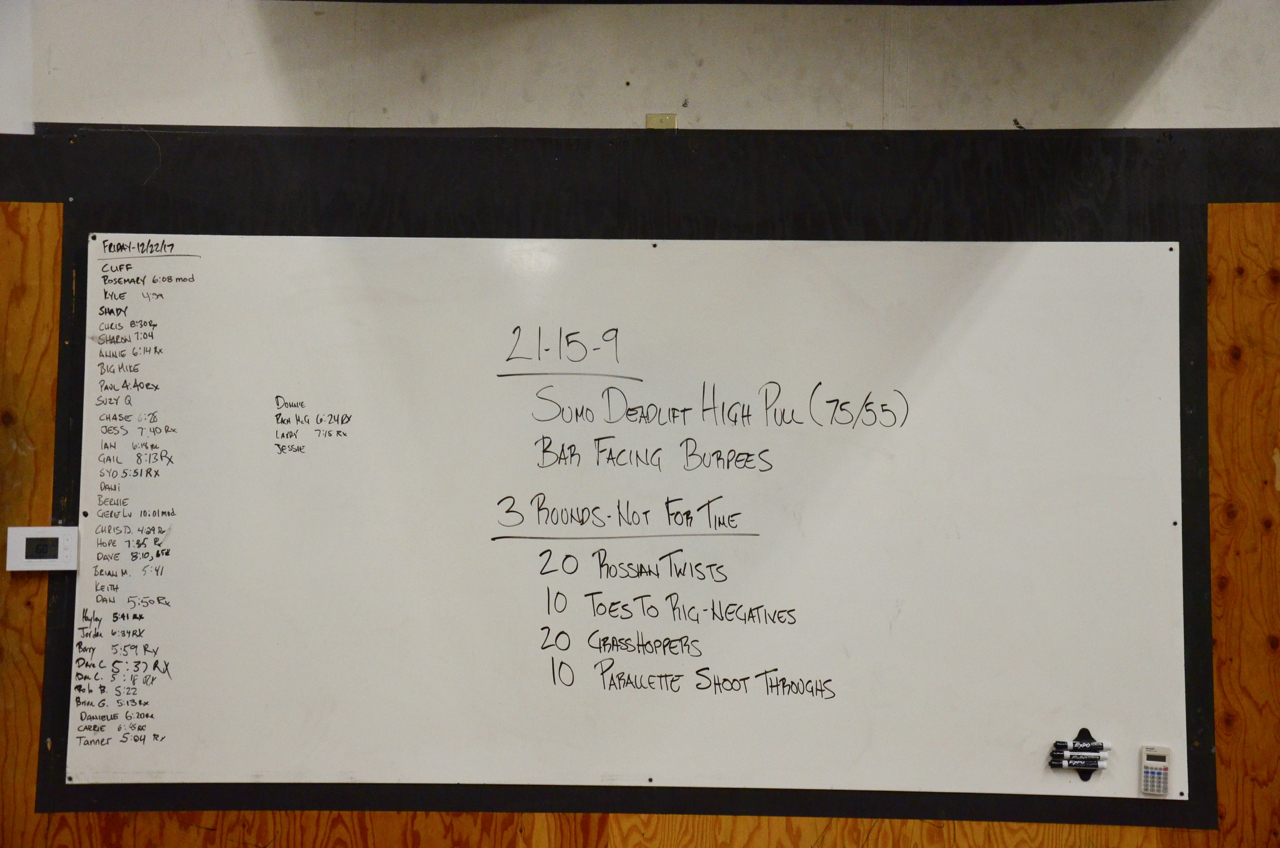 FRIDAY-12/22/17
CUFF
ROSEMARY 6:08 mod
KYLE
SHADY
CHRIS 8:30 Rx
SHARON 7:04
ANNIE 6:14 Rx
BIG MIKE
PAUL 4:40 RX
SUZY Q
CHASE
JESS 7:40 Rx
IAN
GAIL 8:13 Rx
SYD 5:51 RX
DANI
BERNIE
10:01 mod
CHRIS D. 4:29 Rx
HOPE 7:35 Rx
DAVE 8:10,
BRIAN M. 5:41
KEITH
DAN 5:50 Rx
Hayley 5:41 RX
Jordan 6:34 RX
Barry 5:59 Rx
Dave C. 5:37 RX
C. 5:18 RX
Rob B. 5:22
G. 5:13 Rx
DANIELLE 6:20 Rx
CARRIE
Tanner 5:04 Rx
DONNIE
McG 6:24 RX
LARRY 7:15 Rx
JESSIE
21-15-9
SUMO DEADLIFT HIGH PULL (75/55)
BAR FACING BURPEES
3 ROUNDS-NOT FOR TIME
20 RUSSIAN TWISTS
10 TOES TO RIG-NEGATIVES
20 GRASSHOPPERS
10 PARALLETTE SHOOT THROUGHS
EXPO
EXPO